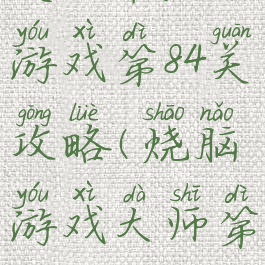 yóu xì dì guān
游戏第84关
gōng lüè shāo nǎo
攻略(烧脑
yóu xì dà shī dì
游戏大师第